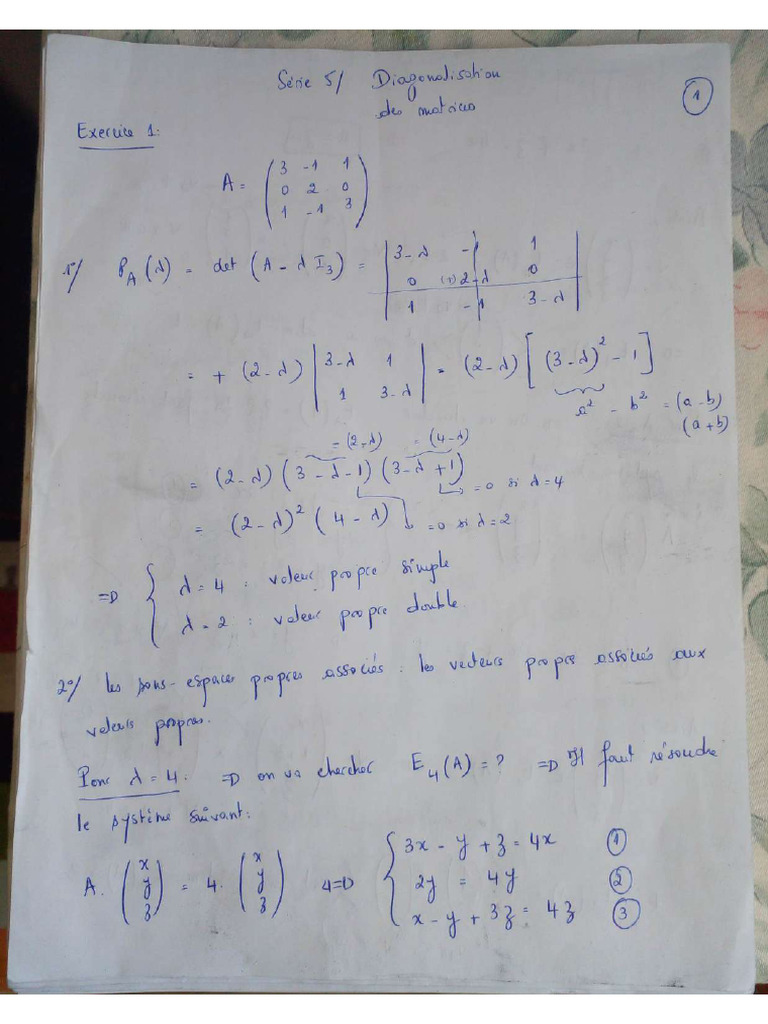 Série 5/ Diagonalisation
des matrices
1
Exercice 1:
A = ( 3 -1 1
0 2 0
1 -1 3 )
1°/ P_A(λ) = det (A - λ I_3) = | 3-λ -1 1
0 (+) 2-λ 0
1 -1 3-λ |
= + (2-λ) | 3-λ 1
1 3-λ | = (2-λ) [ (3-λ)² - 1 ]
a² - b² = (a-b)
(a+b)
= (2-λ) = (4-λ)
= (2-λ) (3-λ-1) (3-λ+1) → =0 si λ=4
= (2-λ)² (4-λ) → =0 si λ=2
=> { λ = 4 : valeur propre simple
λ = 2 : valeur propre double.
2°/ les sous-espaces propres associés : les vecteurs propres associés aux
valeurs propres.
Pour λ = 4 : => on va chercher E_4(A) = ? => Il faut résoudre
le système suivant:
A. ( x y z ) = 4. ( x y z ) <=> { 3x - y + z = 4x ①
2y = 4y ②
x - y + 3z = 4z ③